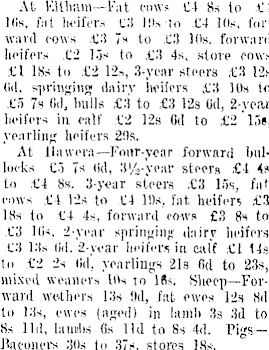 At Eltham—Fat cows £4 8s to £
16s, fat heifers £3 19s to £4 10s, for-
ward cows £3 7s to £3 10s, forward
heifers £2 15s to £3 4s, store cows
£1 18s to £2 12s, 3-year steers £3 12s
6d, springing dairy heifers £3 10s to
£5 7s 6d, bulls £3 to £3 12s 6d, 2-year
heifers in calf £2 12s 6d to £2 15s,
yearling heifers 29s.
At Hawera—Four-year forward bul-
locks £5 7s 6d, 3½-year steers £4 4s
to £4 8s, 3-year steers £3 15s, fat
cows £4 12s to £4 19s, fat heifers £3
18s to £4 4s, forward cows £3 8s to
£3 16s, 2-year springing dairy heifers
£3 13s 6d. 2-year heifers in calf £1 14s
to £2 2s 6d, yearlings 21s 6d to 23s,
mixed weaners 10s to 16s. Sheep—For-
ward wethers 13s 9d, fat ewes 12s 8d
to 13s, ewes (aged) in lamb 3s 3d to
8s 11d, lambs 6s 11d to 8s 4d. Pigs—
Baconers 30s to 37s, stores 18s.